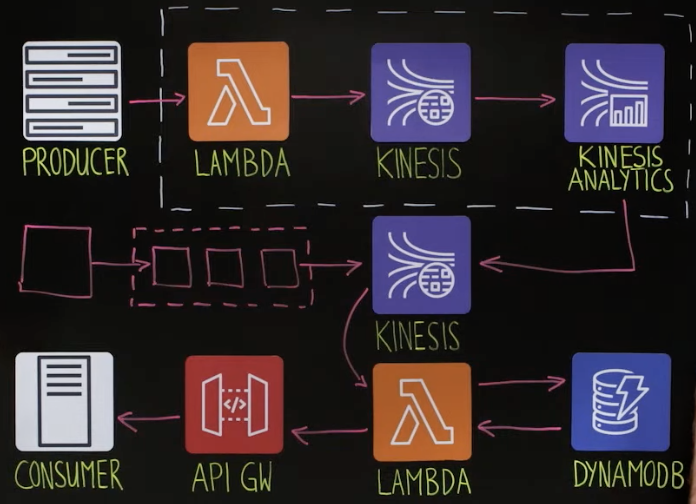 PRODUCER
LAMBDA
KINESIS
KINESIS
ANALYTICS
KINESIS
CONSUMER
API GW
LAMBDA
DYNAMODB